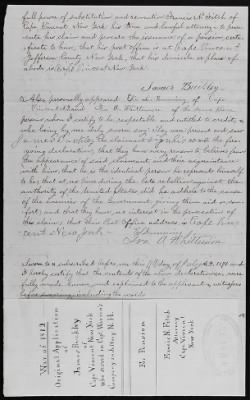 full power of substitution and revocation Francis N. Fitch of
Cape Vincent New York his true and lawful attorney to prosecute
his claim and procure the issuance of a pension certificate
to him; that his post office is at Cape Vincent
Jefferson County New York, that his domicile or place of
abode is Cape Vincent New York
James Buckley
Also personally appeared
Vincent and
persons whom I certify to be respectable and entitled to credit, and
who being by me duly sworn say they were present and saw
James Buckley the claimant sign his name to the foregoing
declaration; that they have every reason to believe from
the appearance of said claimant and their acquaintance
with him, that he is the identical person he represents himself
to be; that at no time during the late rebellion against the
authority of the United States did he adhere to the cause
of the enemies of the Government, giving them aid or comfort;
and that they have no interest in the prosecution of
this claim; that their Post Office address is Cape Vincent
New York
Sworn to & subscribed before me this day of July A.D. 1871 and
I hereby certify that the contents of the above declaration were
fully made known and explained to the applicant & witnesses
before swearing including the words
War of 1812
Original Application
of
James Buckley
of
Cape Vincent New York
who served in Capt Warren's
Company
Pension
Francis N. Fitch
Attorney
Cape Vincent
New York